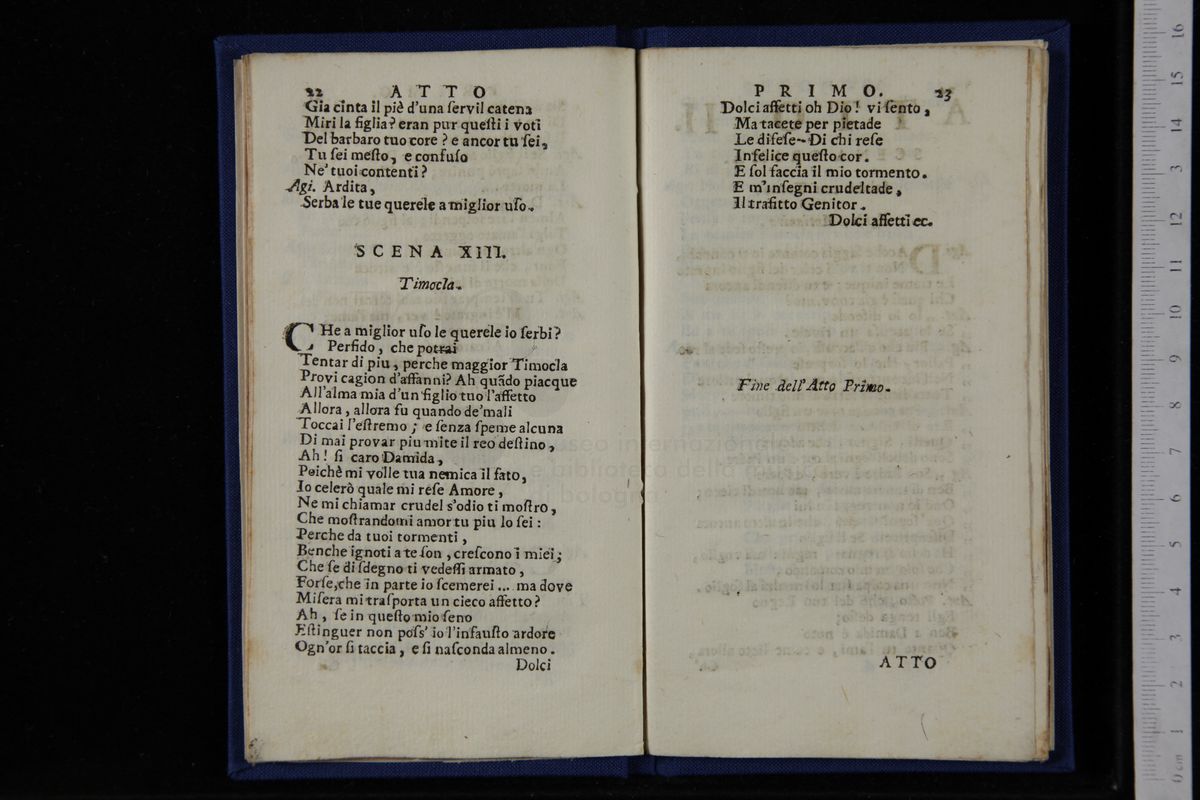 22 ATTO
Gia cinta il piè d'una ſervil catena
Miri la figlia? eran pur queſti i voti
Del barbaro tuo core? e ancor tu ſei,
Tu ſei meſto, e confuſo
Ne' tuoi contenti?
Agi. Ardita,
Serba le tue querele a miglior uſo.
SCENA XIII.
Timocla.
CHe a miglior uſo le querele io ſerbi?
Perfido, che potrai
Tentar di piu, perche maggior Timocla
Provi cagion d'affanni? Ah quãdo piacque
All'alma mia d'un figlio tuo l'affetto
Allora, allora fu quando de' mali
Toccai l'eſtremo; e ſenza ſpeme alcuna
Di mai provar piu mite il reo deſtino,
Ah! ſi caro Damida,
Poichè mi volle tua nemica il fato,
Io celerò quale mi reſe Amore,
Ne mi chiamar crudel s'odio ti moſtro,
Che moſtrandomi amor tu piu lo ſei:
Perche da tuoi tormenti,
Benche ignoti a te ſon, creſcono i miei;
Che ſe di ſdegno ti vedeſſi armato,
Forſe, che in parte io ſcemerei... ma dove
Miſera mi traſporta un cieco affetto?
Ah, ſe in queſto mio ſeno
Eſtinguer non poſs' io l'infauſto ardore
Ogn'or ſi taccia, e ſi naſconda almeno.
Dolci
PRIMO. 23
Dolci affetti oh Dio! vi ſento,
Ma tacete per pietade
Le difeſe- Di chi reſe
Infelice queſto cor.
E ſol faccia il mio tormento.
E m'inſegni crudeltade,
Il trafitto Genitor.
Dolci affetti ec.
Fine dell'Atto Primo.
ATTO
museo internazionale
e biblioteca della musica
di bologna
16
15
14
13
12
11
10
9
8
7
6
5
4
3
2
1
0 cm